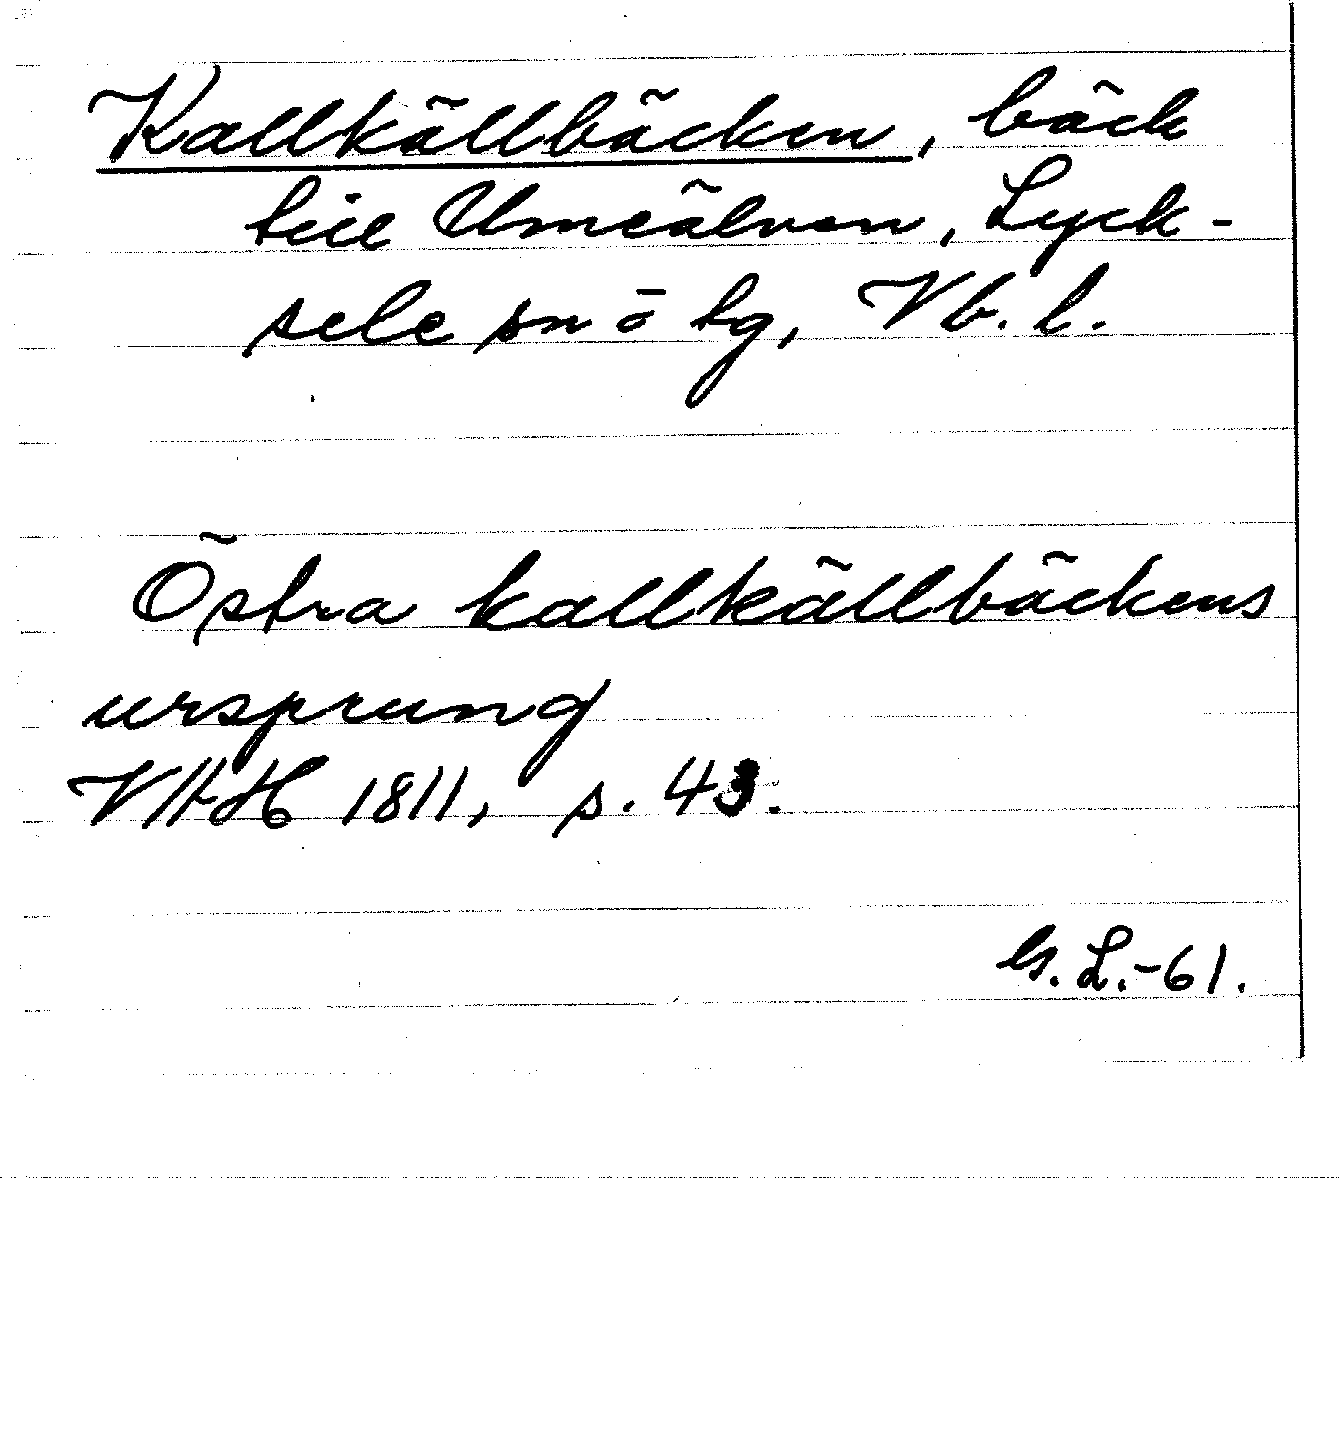 Kallkällbäcken, bäck
till Umeälven, Lyck-
sele sn ō tg, Vb. l.
Östra kallkällbäckens
ursprung
VHH 1811, s. 43.
G. L.-61.